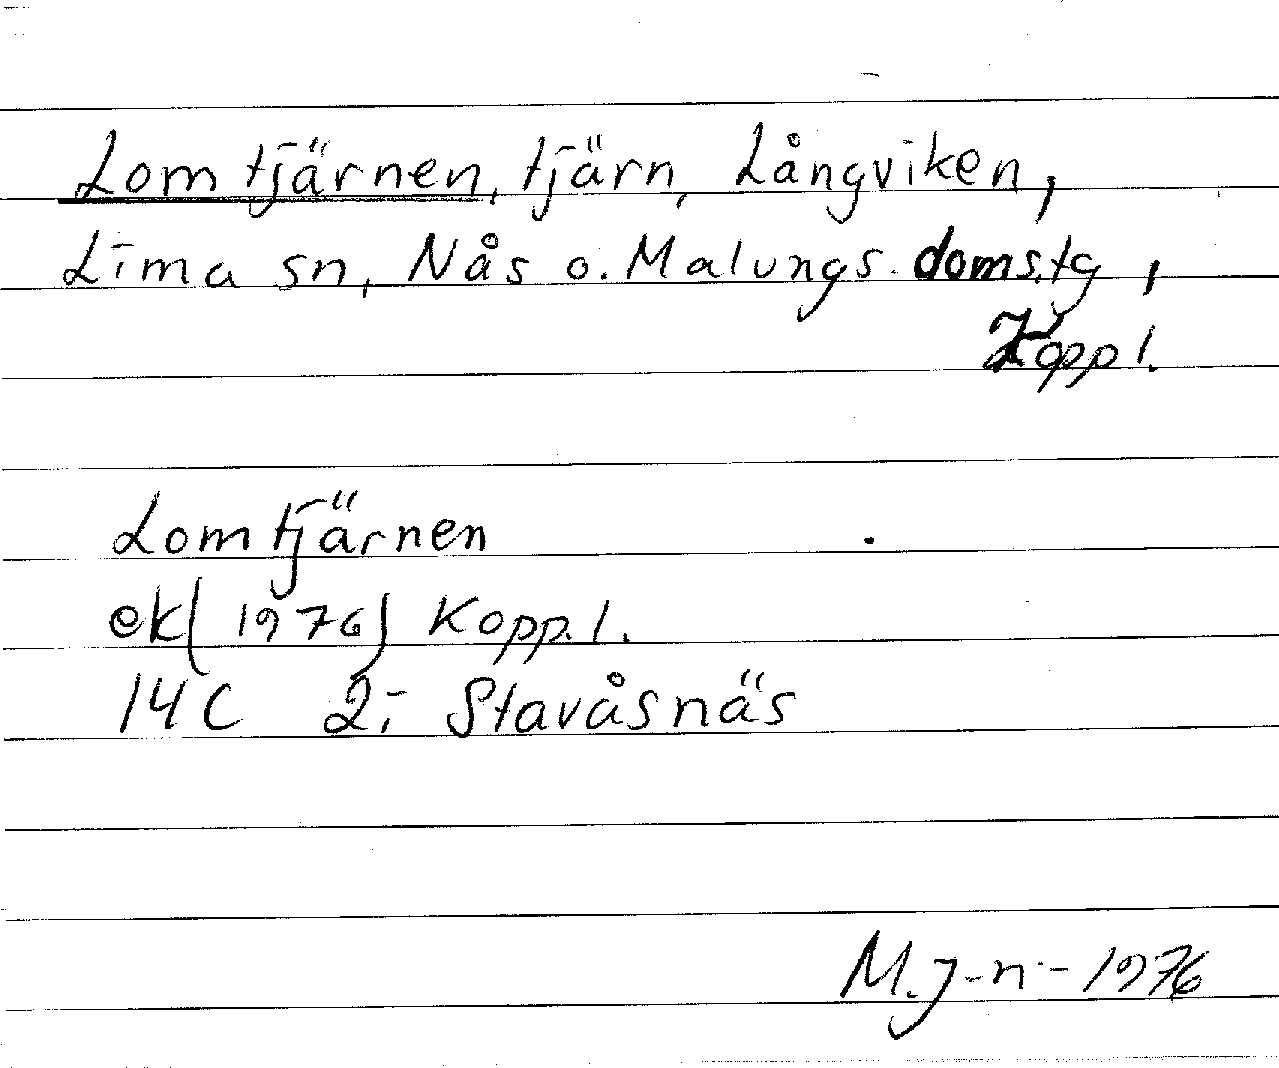 Lomtjärnen, tjärn, Långviken,
Lima sn, Nås o. Malungs doms.tg,
Kopp l.
Lomtjärnen
ek (1976) Kopp. l.
14C 2:- Stavåsnäs
M.J-n-1976